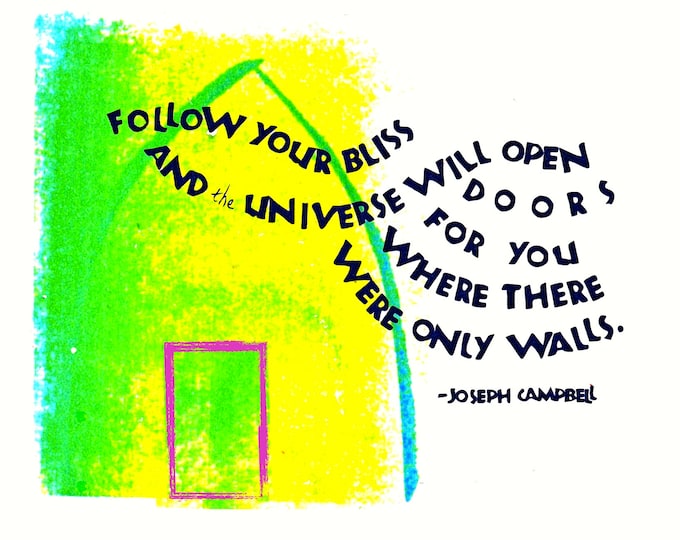 FOLLOW YOUR BLISS
AND the UNIVERSE WILL OPEN
DOORS
FOR YOU
WHERE THERE
WERE ONLY WALLS.
-JOSEPH CAMPBELL